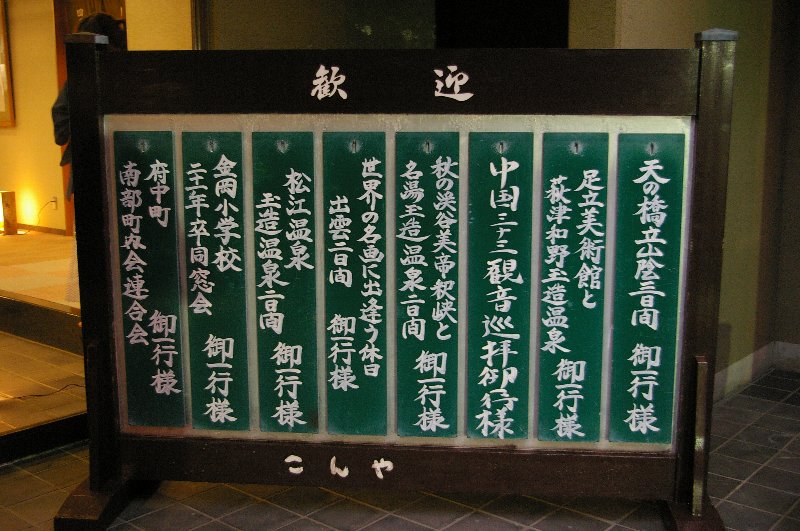 歓迎
天の橋立山陰三日間 御一行様
足立美術館と
萩津和野玉造温泉 御一行様
中国三十三観音巡拝御一行様
秋の渓谷美帝釈峡と
名湯玉造温泉二日間 御一行様
世界の名画に出逢う休日
出雲二日間 御一行様
松江温泉
玉造温泉二日間 御一行様
金岡小学校
二十二年卒同窓会 御一行様
府中町
南部町内会連合会 御一行様
こんや